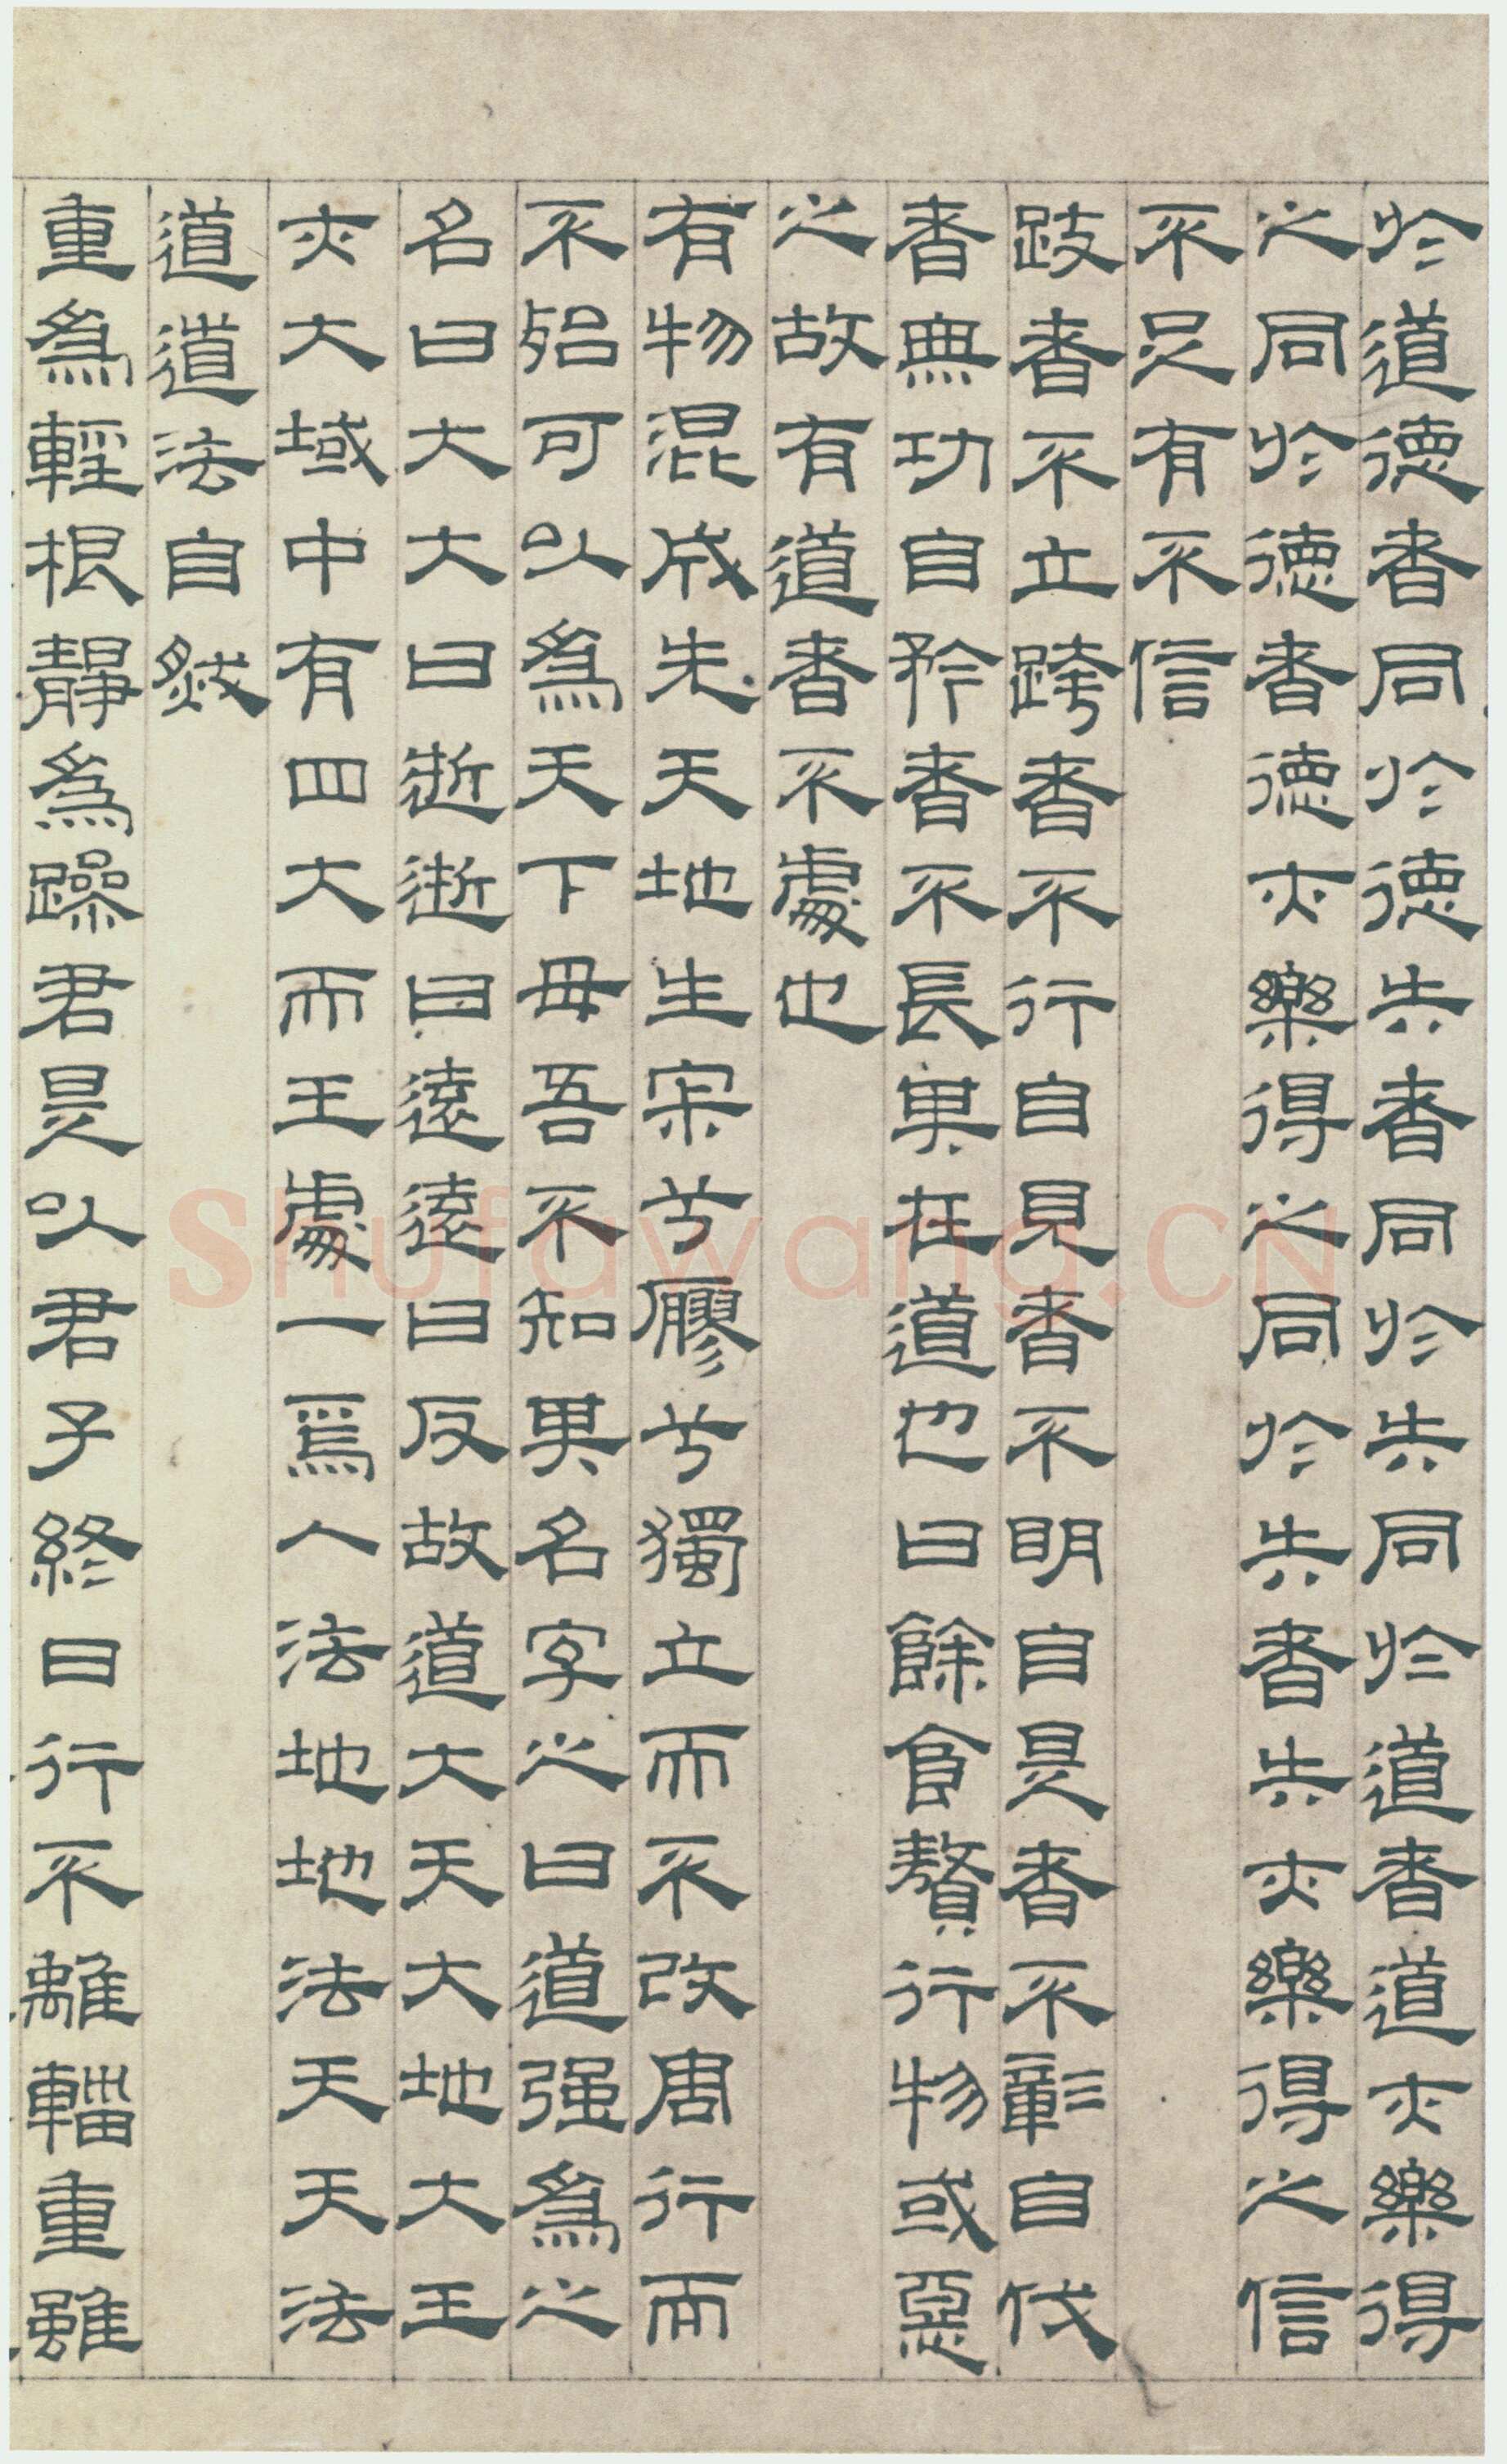 於道德者同於德失者同於失同於道者道亦樂得
之同於德者德亦樂得之同於失者失亦樂得之信
不足有不信
跂者不立跨者不行自見者不明自是者不彰自伐
者無功自矜者不長其在道也曰餘食贅行物或惡
之故有道者不處也
有物混成先天地生寂兮廖兮獨立而不改周行而
不殆可以為天下母吾不知其名字之曰道強為之
名曰大大曰逝逝曰遠遠曰反故道大天大地大王
亦大域中有四大而王處一焉人法地地法天天法
道道法自然
重為輕根靜為躁君是以君子終日行不離輜重雖
Shufawang.CN